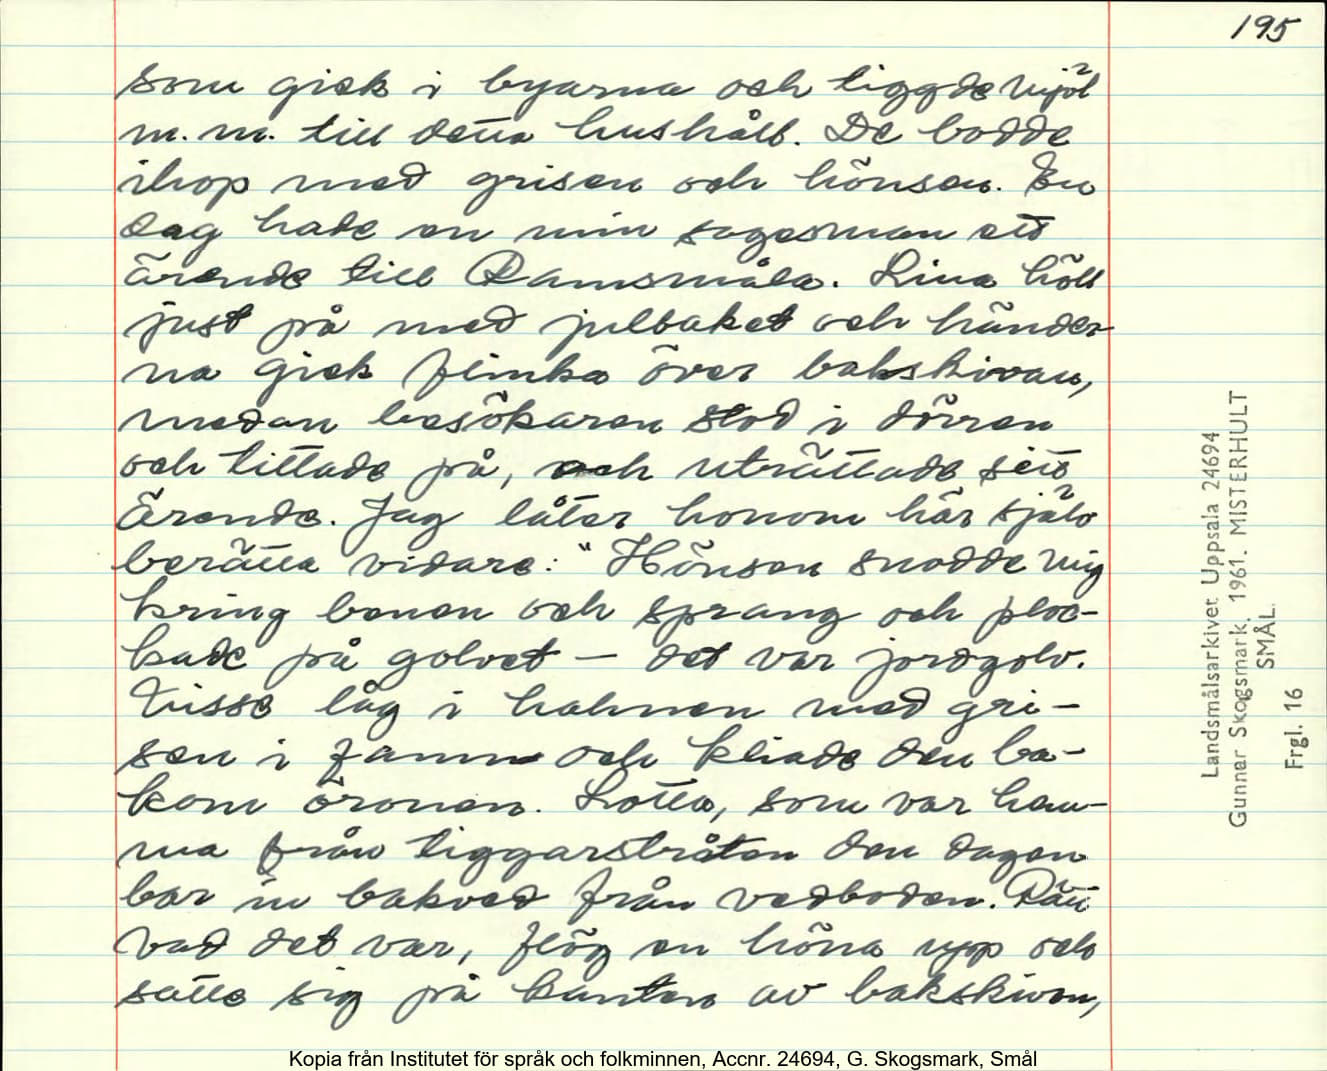 195
som gick i byarna och tiggde mjöl
m.m. till detta hushåll. De bodde
ihop med grisen och hönsen. En
dag hade en min sagesman ett
ärende till Ramsmåla. Lina höll
just på med julbaket och händer-
na gick flinka över bakskivan,
medan besökaren stod i dörren
och tittade på, och uträttade sitt
ärende. Jag låter honom här själv
berätta vidare: "Hönsen snodde mig
kring benen och sprang och ploc-
kade på golvet — det var jordgolv.
Nisse låg i halmen med gri-
sen i famn och kliade den ba-
kom öronen. Lotta, som var hem-
ma från tiggarstråten den dagen
bar in bakved från vedboden. Rätt
vad det var, flög en höna upp och
satte sig på kanten av bakskivan,
Landsmålsarkivet Uppsala 24694
Gunnar Skogsmark. 1961. MISTERHULT
SMÅL.
Frgl. 16
Kopia från Institutet för språk och folkminnen, Accnr. 24694, G. Skogsmark, Smål